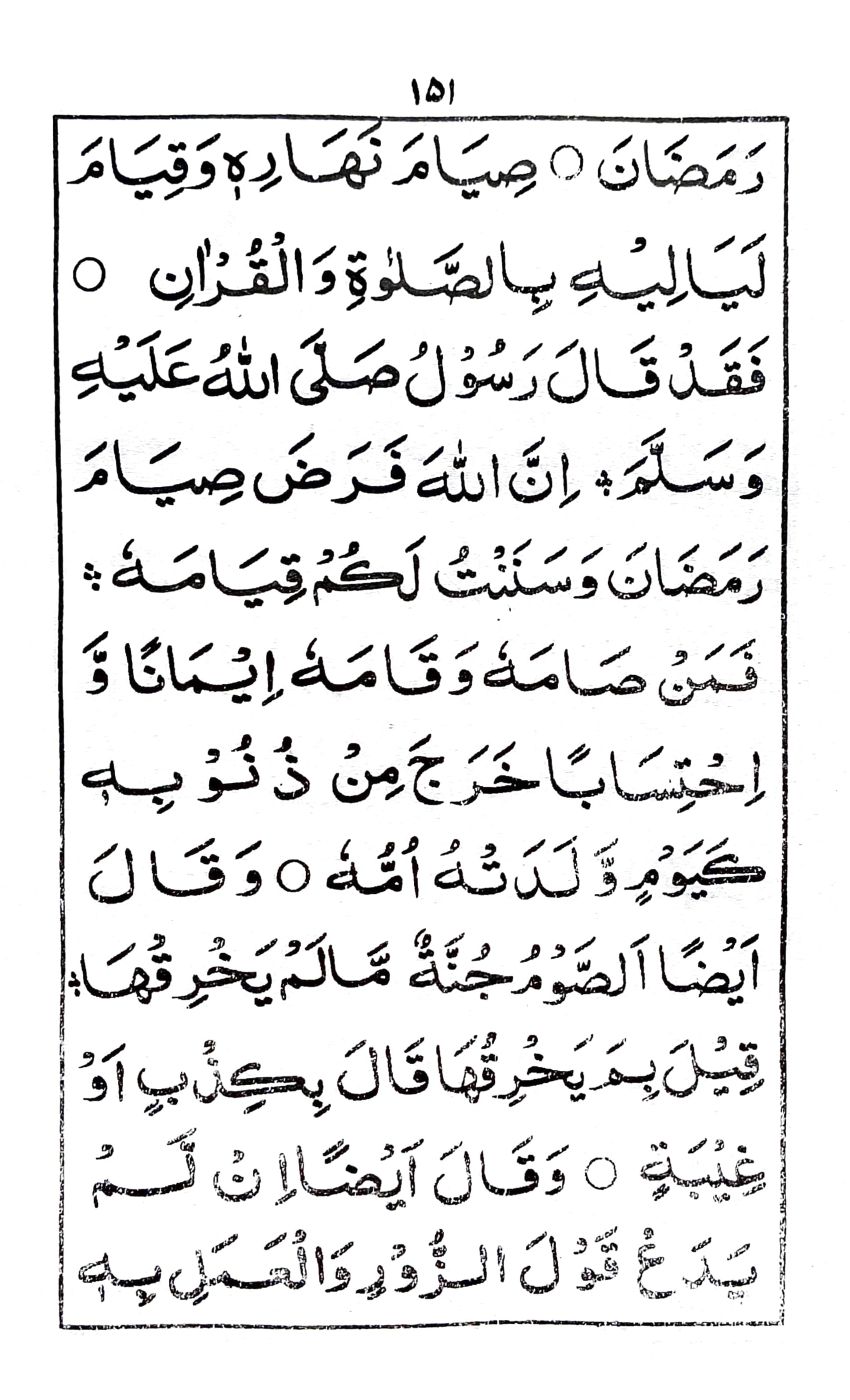 ١٥١
رَمَضَانَ ○ صِيَامَ نَهَارِهٖ وَقِيَامَ
لَيَالِيْهِ بِالصَّلٰوةِ وَالْقُرْاٰنِ ○
فَقَدْ قَالَ رَسُوْلُ صَلَّى اللهُ عَلَيْهِ
وَسَلَّمَ ؞ اِنَّ اللهَ فَرَضَ صِيَامَ
رَمَضَانَ وَسَنَنْتُ لَكُمْ قِيَامَهٗ ؞
فَمَنْ صَامَهٗ وَقَامَهٗ اِيْمَانًا وَّ
اِحْتِسَابًا خَرَجَ مِنْ ذُنُوْبِهٖ
كَيَوْمٍ وَّلَدَتْهُ اُمُّهٗ ○ وَقَالَ
اَيْضًا اَلصَّوْمُ جُنَّةٌ مَّالَمْ يَخْرِقْهَا ؞
قِيْلَ بِمَ يَخْرِقُهَا قَالَ بِكِذْبٍ اَوْ
غِيْبَةٍ ○ وَقَالَ اَيْضًا اِنْ لَّمْ
يَدَعْ قَوْلَ الزُّوْرِ وَالْعَمَلِ بِهٖ